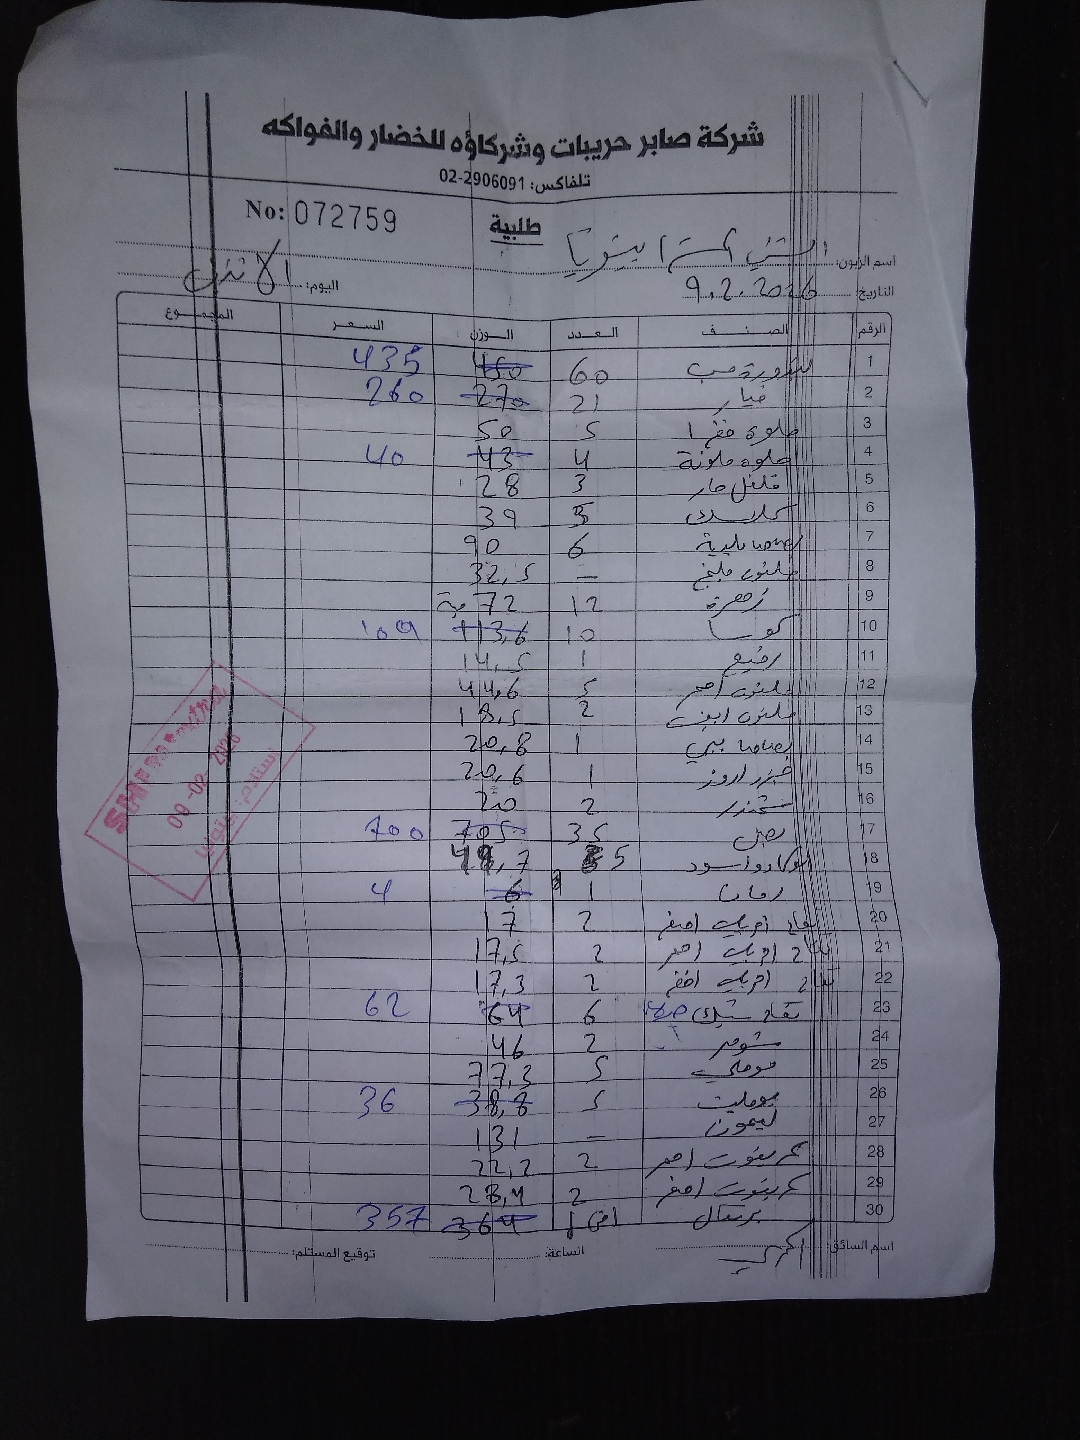 شركة صابر حريبات وشركاؤه للخضار والفواكه
تلفاكس: 02-2906091
No: 072759
طلبية
اسم الزبون:
اليوم: الاثنين
التاريخ: 9.2.2026
الرقم الصنف العدد الوزن السعر المجموع
1 بندورة حب 60 450 435
2 خيار 21 270 260
3 حلوة خضرا 5 50
4 حلوة ملونة 4 43 40
5 فلفل حار 3 28
6 5 39
7 بطاطا بلدية 6 90
8 - 32,5
9 زهرة 12 72
10 كوسا 10 113,6 109
11 رفيع 1 14,5
12 ملفوف احمر 5 44,6
13 ملفوف ابيض 2 18,5
14 بطاطا بيبي 1 20,8
15 جزر 1 20,6
16 شمندر 2 20
17 بصل 35 705 700
18 افوكادو اسود 5 48,7
19 رمان 1 6 4
20 تفاح اصفر 2 17
21 تفاح احمر 2 17,5
22 تفاح اخضر 2 17,3
23 تفاح 6 64 62
24 شومر 2 46
25 5 77,3
26 بومليت 5 38,8 36
27 ليمون - 131
28 جريفوت احمر 2 22,2
29 جريفوت اصفر 2 23,4
30 برتقال 1 364 357
اسم السائق:
الساعة:
توقيع المستلم:
09-02-2026